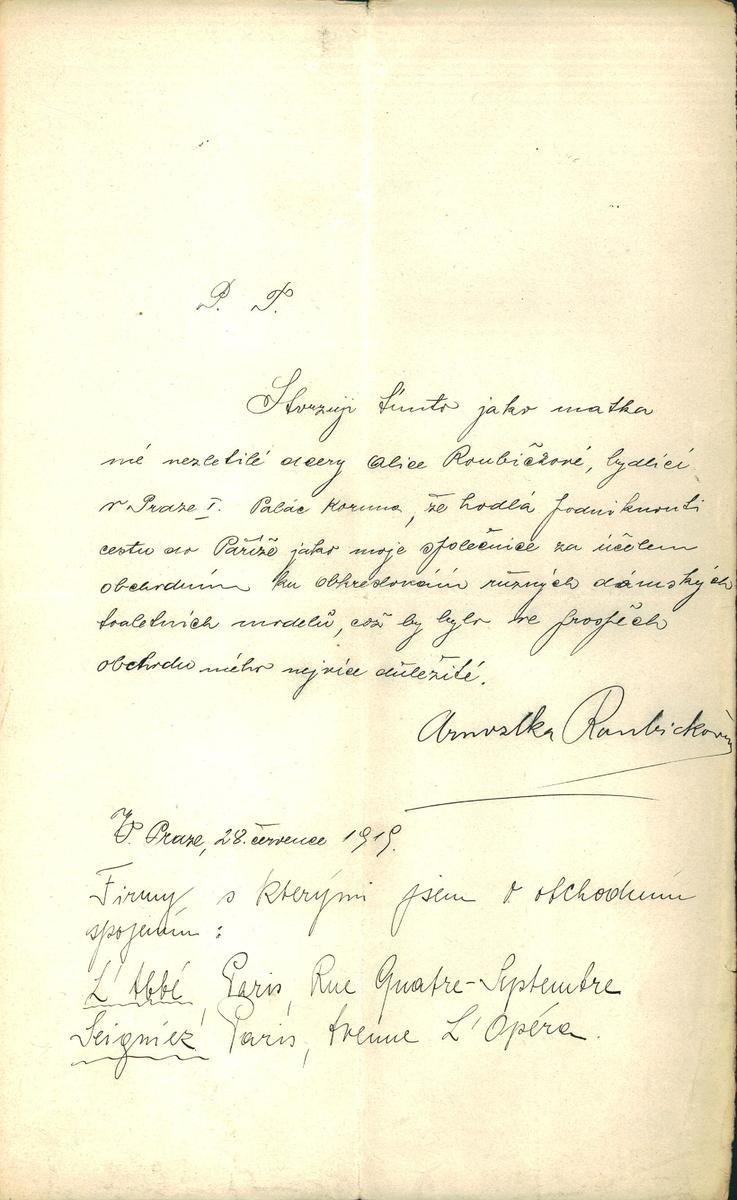 P. T.
Stvrzuji tímto jako matka
mé nezletilé dcery Alice Roubíčkové, bydlící
v Praze I. Palác Koruna, že hodlá podniknouti
cestu do Paříže jako moje společnice za účelem
obchodním ku obkreslování různých dámských
toaletních modelů, což by bylo ve prospěch
obchodu mého nejvíce důležité.
Arnoštka Roubíčková
V Praze, 28. července 1919.
Firmy s kterými jsem v obchodním
spojením :
L' Abbé, Paris, Rue Quatre-Septembre
Seigniez Paris, Avenue L'Opéra.